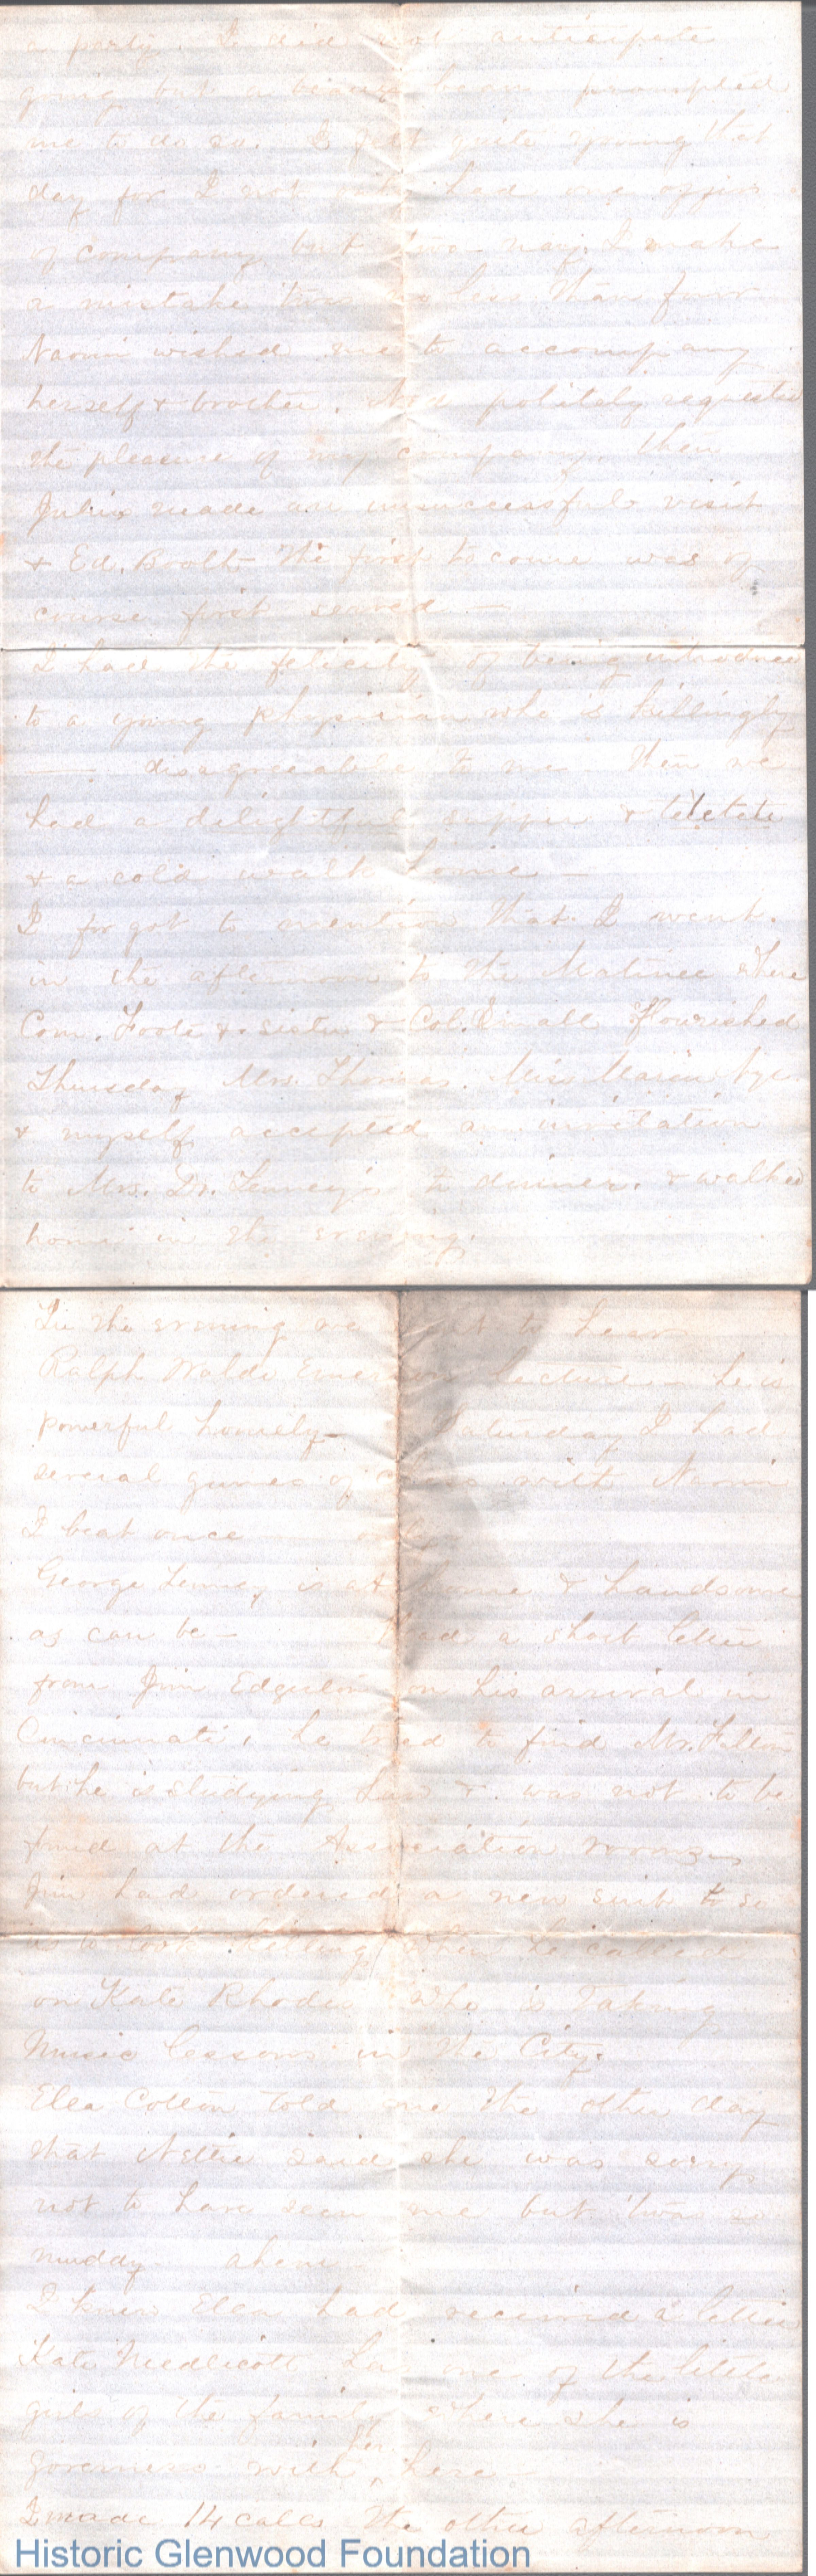 a party. I did not anticipate
going but a beau prompted
me to do so. I felt quite young that
day for I not only had one offer
of company but two nay, I make
a mistake twas no less than four
Naomi wished me to accompany
herself & brother. politely requested
the pleasure of my company. then
Julia made an unsuccessful visit
& Ed. Booth The first to come was of
course first served —
I had the felicity of being introduced
to a young physician who is killingly
— disagreeable to me. Then we
had a delightful supper & tetetete
& a cold walk home —
I forgot to mention that I went
in the afternoon to the Matinee where
Com. Foote & sister & Col. Small flourished
Thursday Mrs. Thomas. Miss Maria
& myself accepted an invitation
to Mrs. Dr. Tenney's to dinner. & walked
home in the evening.
In the evening we went to hear
Ralph Waldo Emerson lecture — he is
powerful homely — Saturday I had
several games of chess with Naomi
I beat once only
George Tenney is at home & handsome
as can be — Had a short letter
from Jim on his arrival in
Cincinnati, he tried to find Mr.
but he is studying Law & was not to be
found at the Association rooms
Jim had ordered a new suit so
as to look killing when he called
on Kate Rhodes who is taking
Music lessons in the City.
Ella Colton told me the other day
that Nettie said she was sorry
not to have seen me but 'twas so
muddy ahem
I knew Ella had received a letter
Kate Medlicott has one of the little
girls of the family where she is
governess with her here
I made 14 calls the other afternoon
Historic Glenwood Foundation